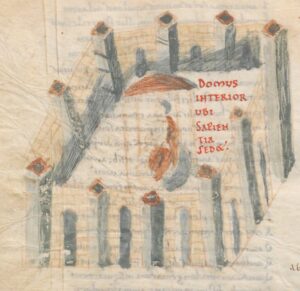 DOMUS
INTERIOR
UBI
SAPIEN
TIA
SED&: